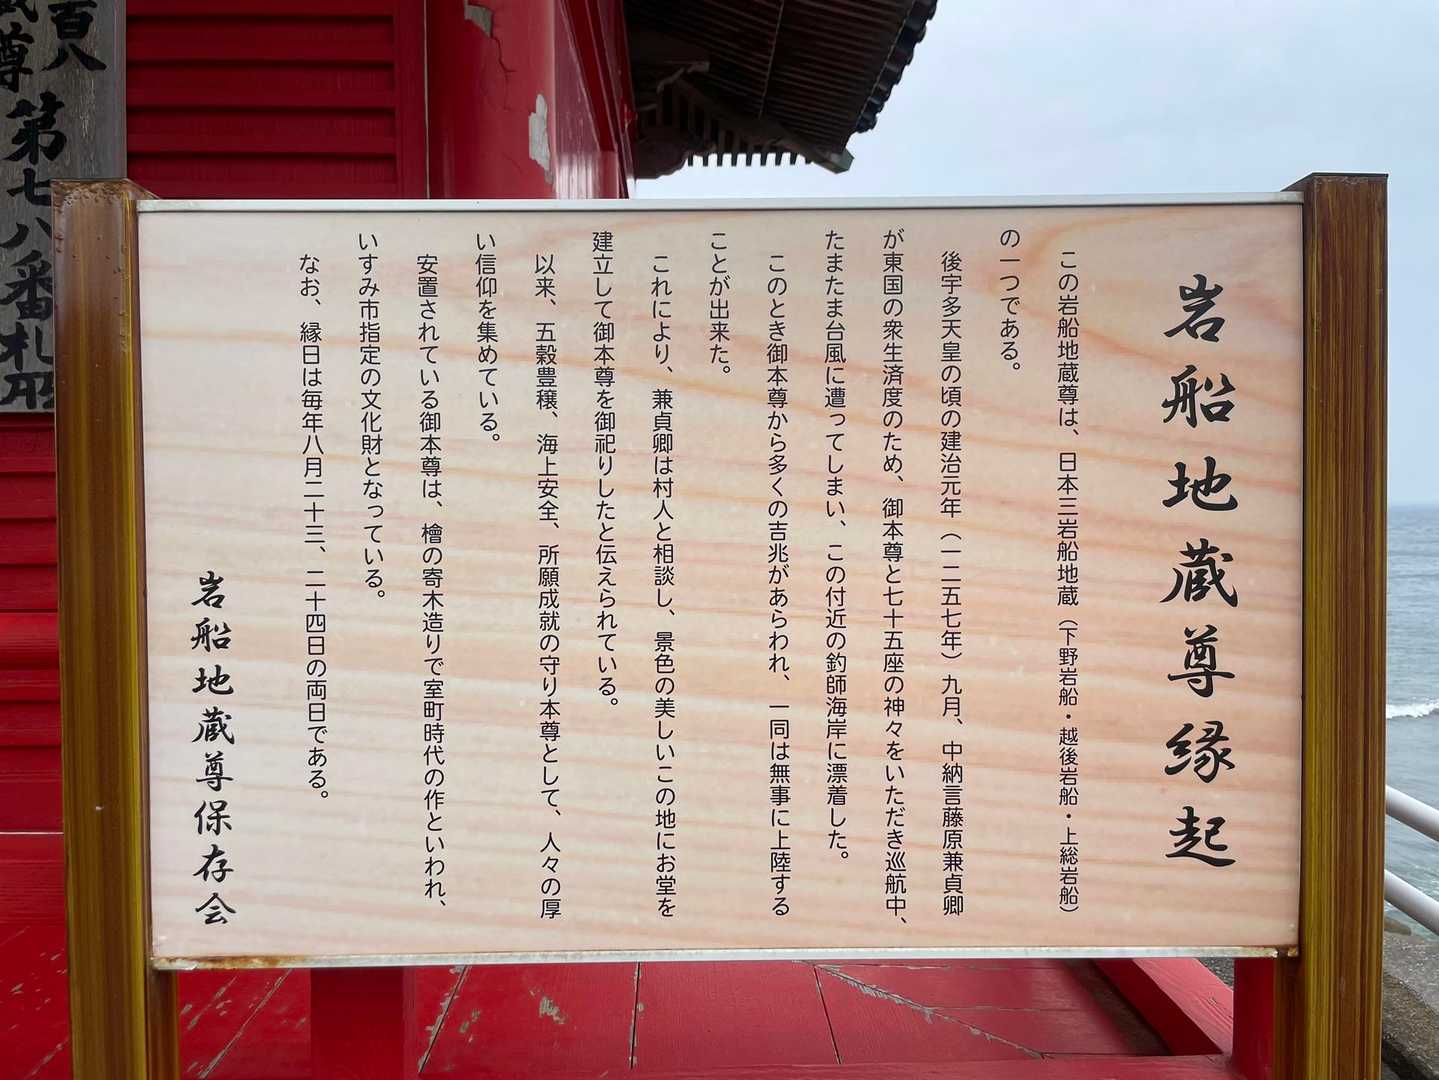 岩船地蔵尊縁起
この岩船地蔵尊は、日本三岩船地蔵（下野岩船・越後岩船・上総岩船）
の一つである。
後宇多天皇の頃の建治元年（一二五七年）九月、中納言藤原兼貞卿
が東国の衆生済度のため、御本尊と七十五座の神々をいただき巡航中、
たまたま台風に遭ってしまい、この付近の釣師海岸に漂着した。
このとき御本尊から多くの吉兆があらわれ、一同は無事に上陸する
ことが出来た。
これにより、兼貞卿は村人と相談し、景色の美しいこの地にお堂を
建立して御本尊を御祀りしたと伝えられている。
以来、五穀豊穣、海上安全、所願成就の守り本尊として、人々の厚
い信仰を集めている。
安置されている御本尊は、檜の寄木造りで室町時代の作といわれ、
いすみ市指定の文化財となっている。
なお、縁日は毎年八月二十三、二十四日の両日である。
岩船地蔵尊保存会
百八
蔵尊第七八番札所